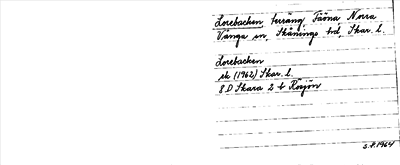 Lorebacken terräng, Fåöna Norra
Vånga sn, Skånings hd, Skar. l.
Lorebacken
ek (1962) Skar. l.
8 D Skara 2 b Roxjön
S.F. 1964